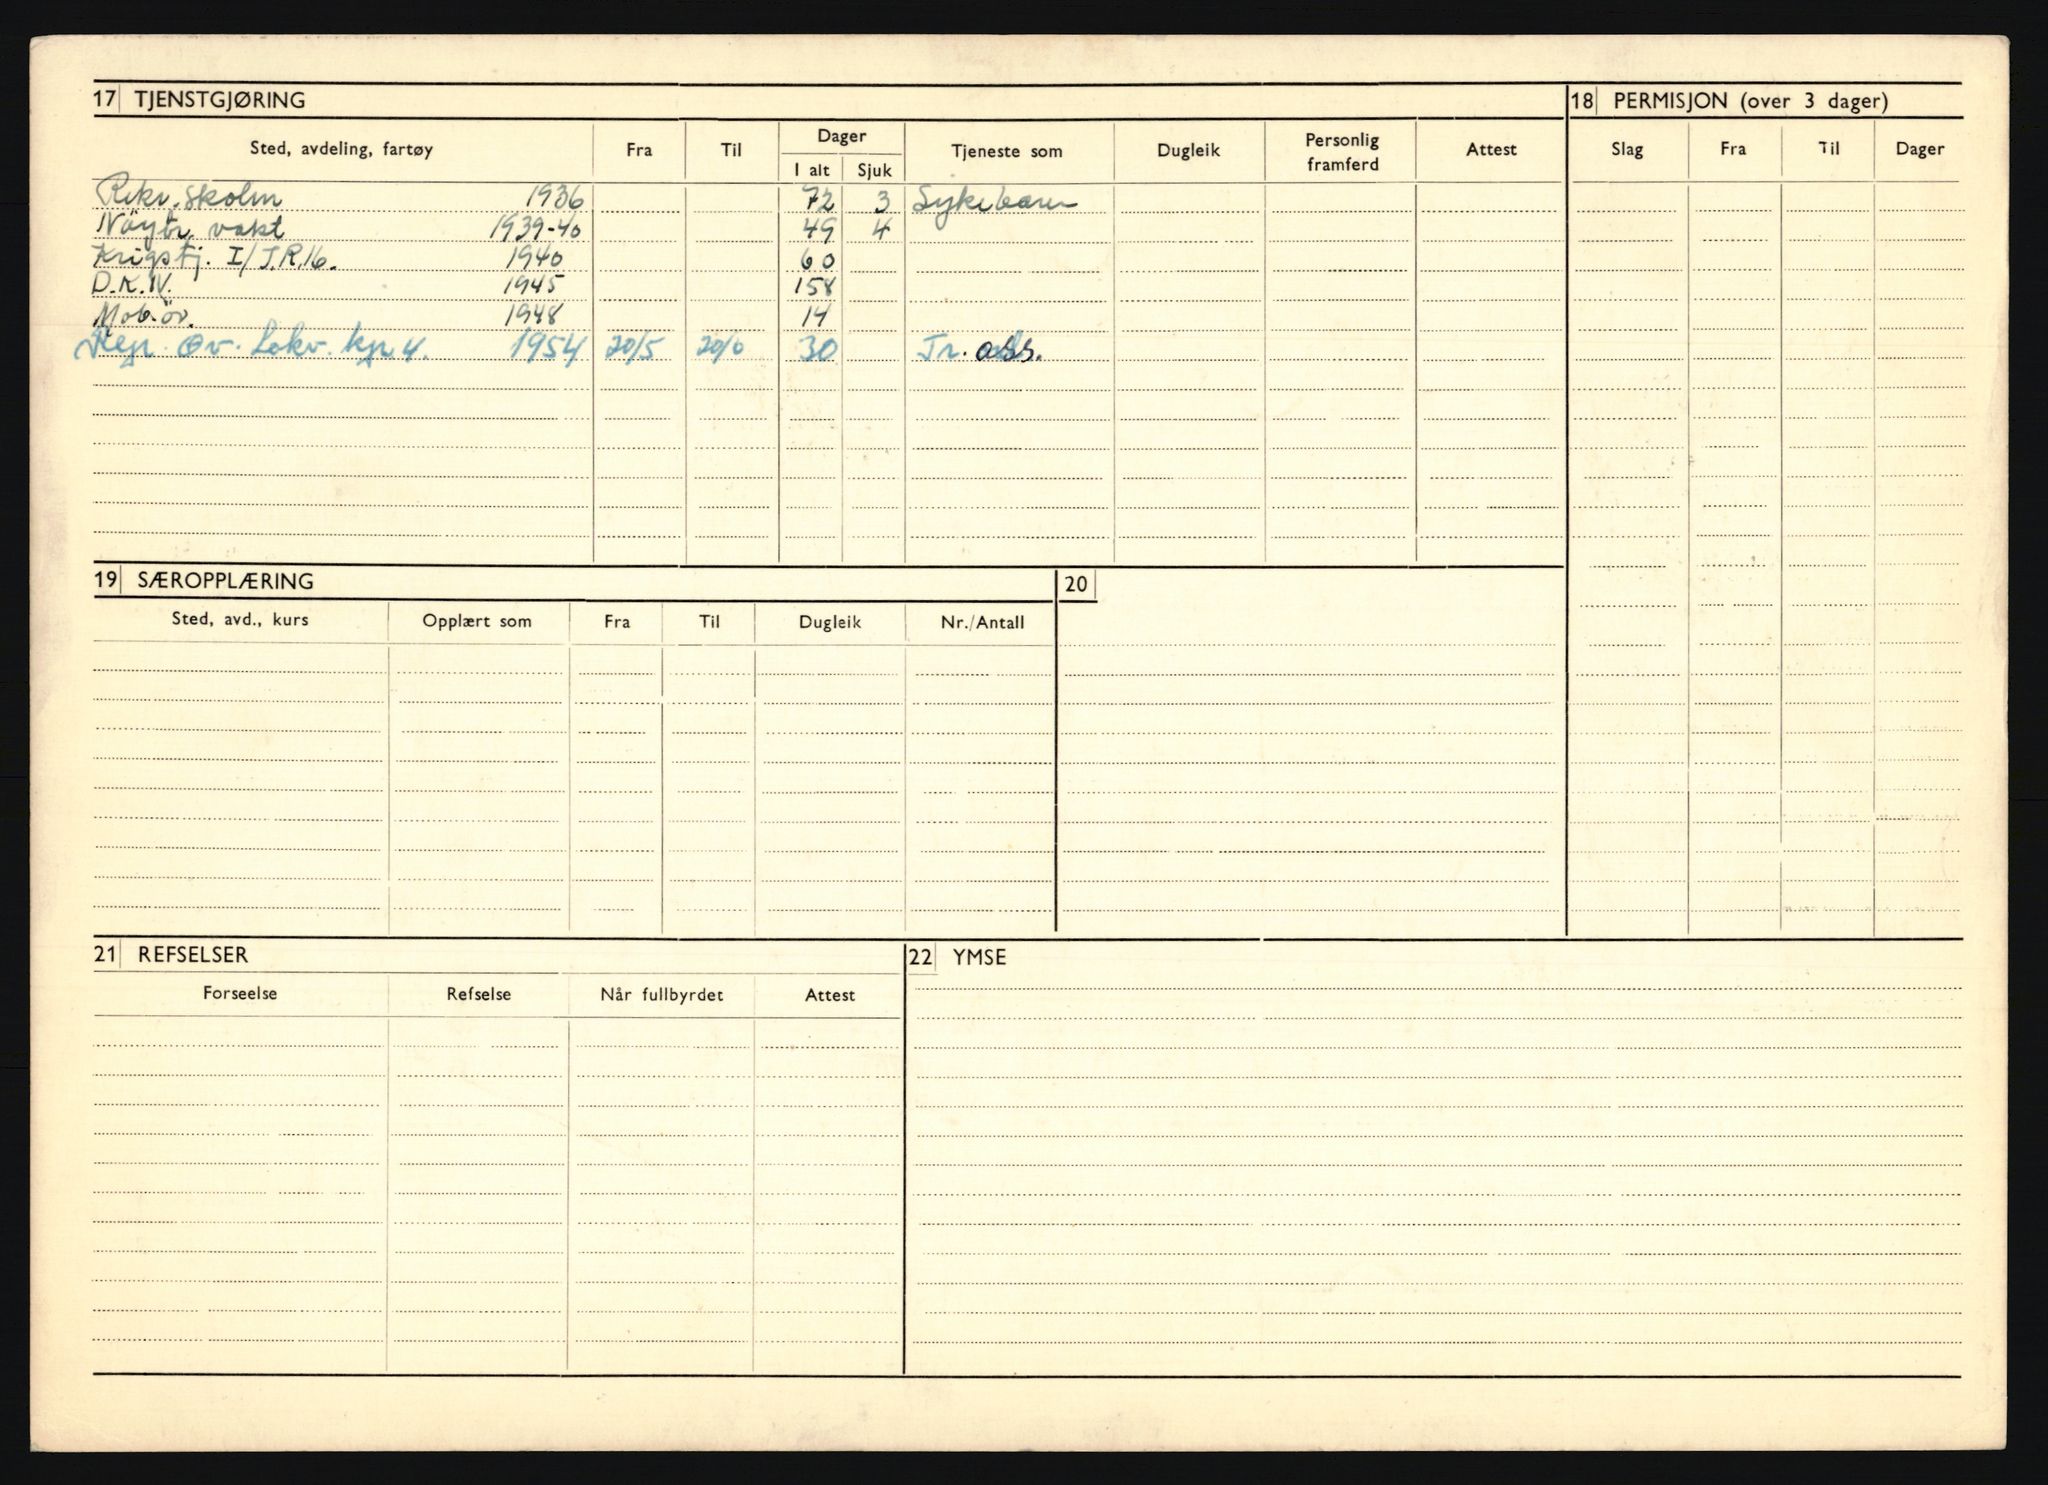 17 TJENSTGJØRING
Sted, avdeling, fartøy Fra Til Dager I alt Sjuk Tjeneste som Dugleik Personlig framferd Attest
Rekr. skolen 1936 72 3 Sykebærer
Nøytr. vakt 1939-40 49 4
Krigstj. I/J.R.16. 1940 60
D.K.V. 1945 158
Mob.öv. 1948 14
Rep. øv. Lokv. kp 4. 1954 20/5 20/6 30 Tr. ass.
18 PERMISJON (over 3 dager)
Slag Fra Til Dager
19 SÆROPPLÆRING
Sted, avd., kurs Opplært som Fra Til Dugleik Nr./Antall
20
21 REFSELSER
Forseelse Refselse Når fullbyrdet Attest
22 YMSE